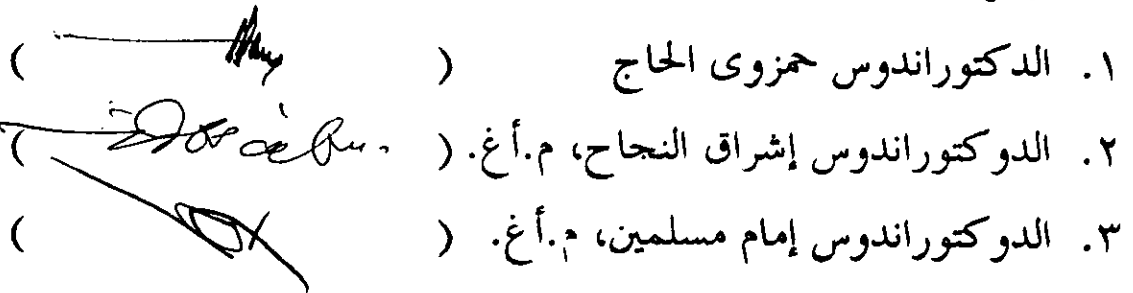 ١. الدكتوراندوس حمزوى الحاج ( )
٢. الدوكتوراندوس إشراق النجاح، م.أغ. ( )
٣. الدوكتوراندوس إمام مسلمين، م.أغ. ( )